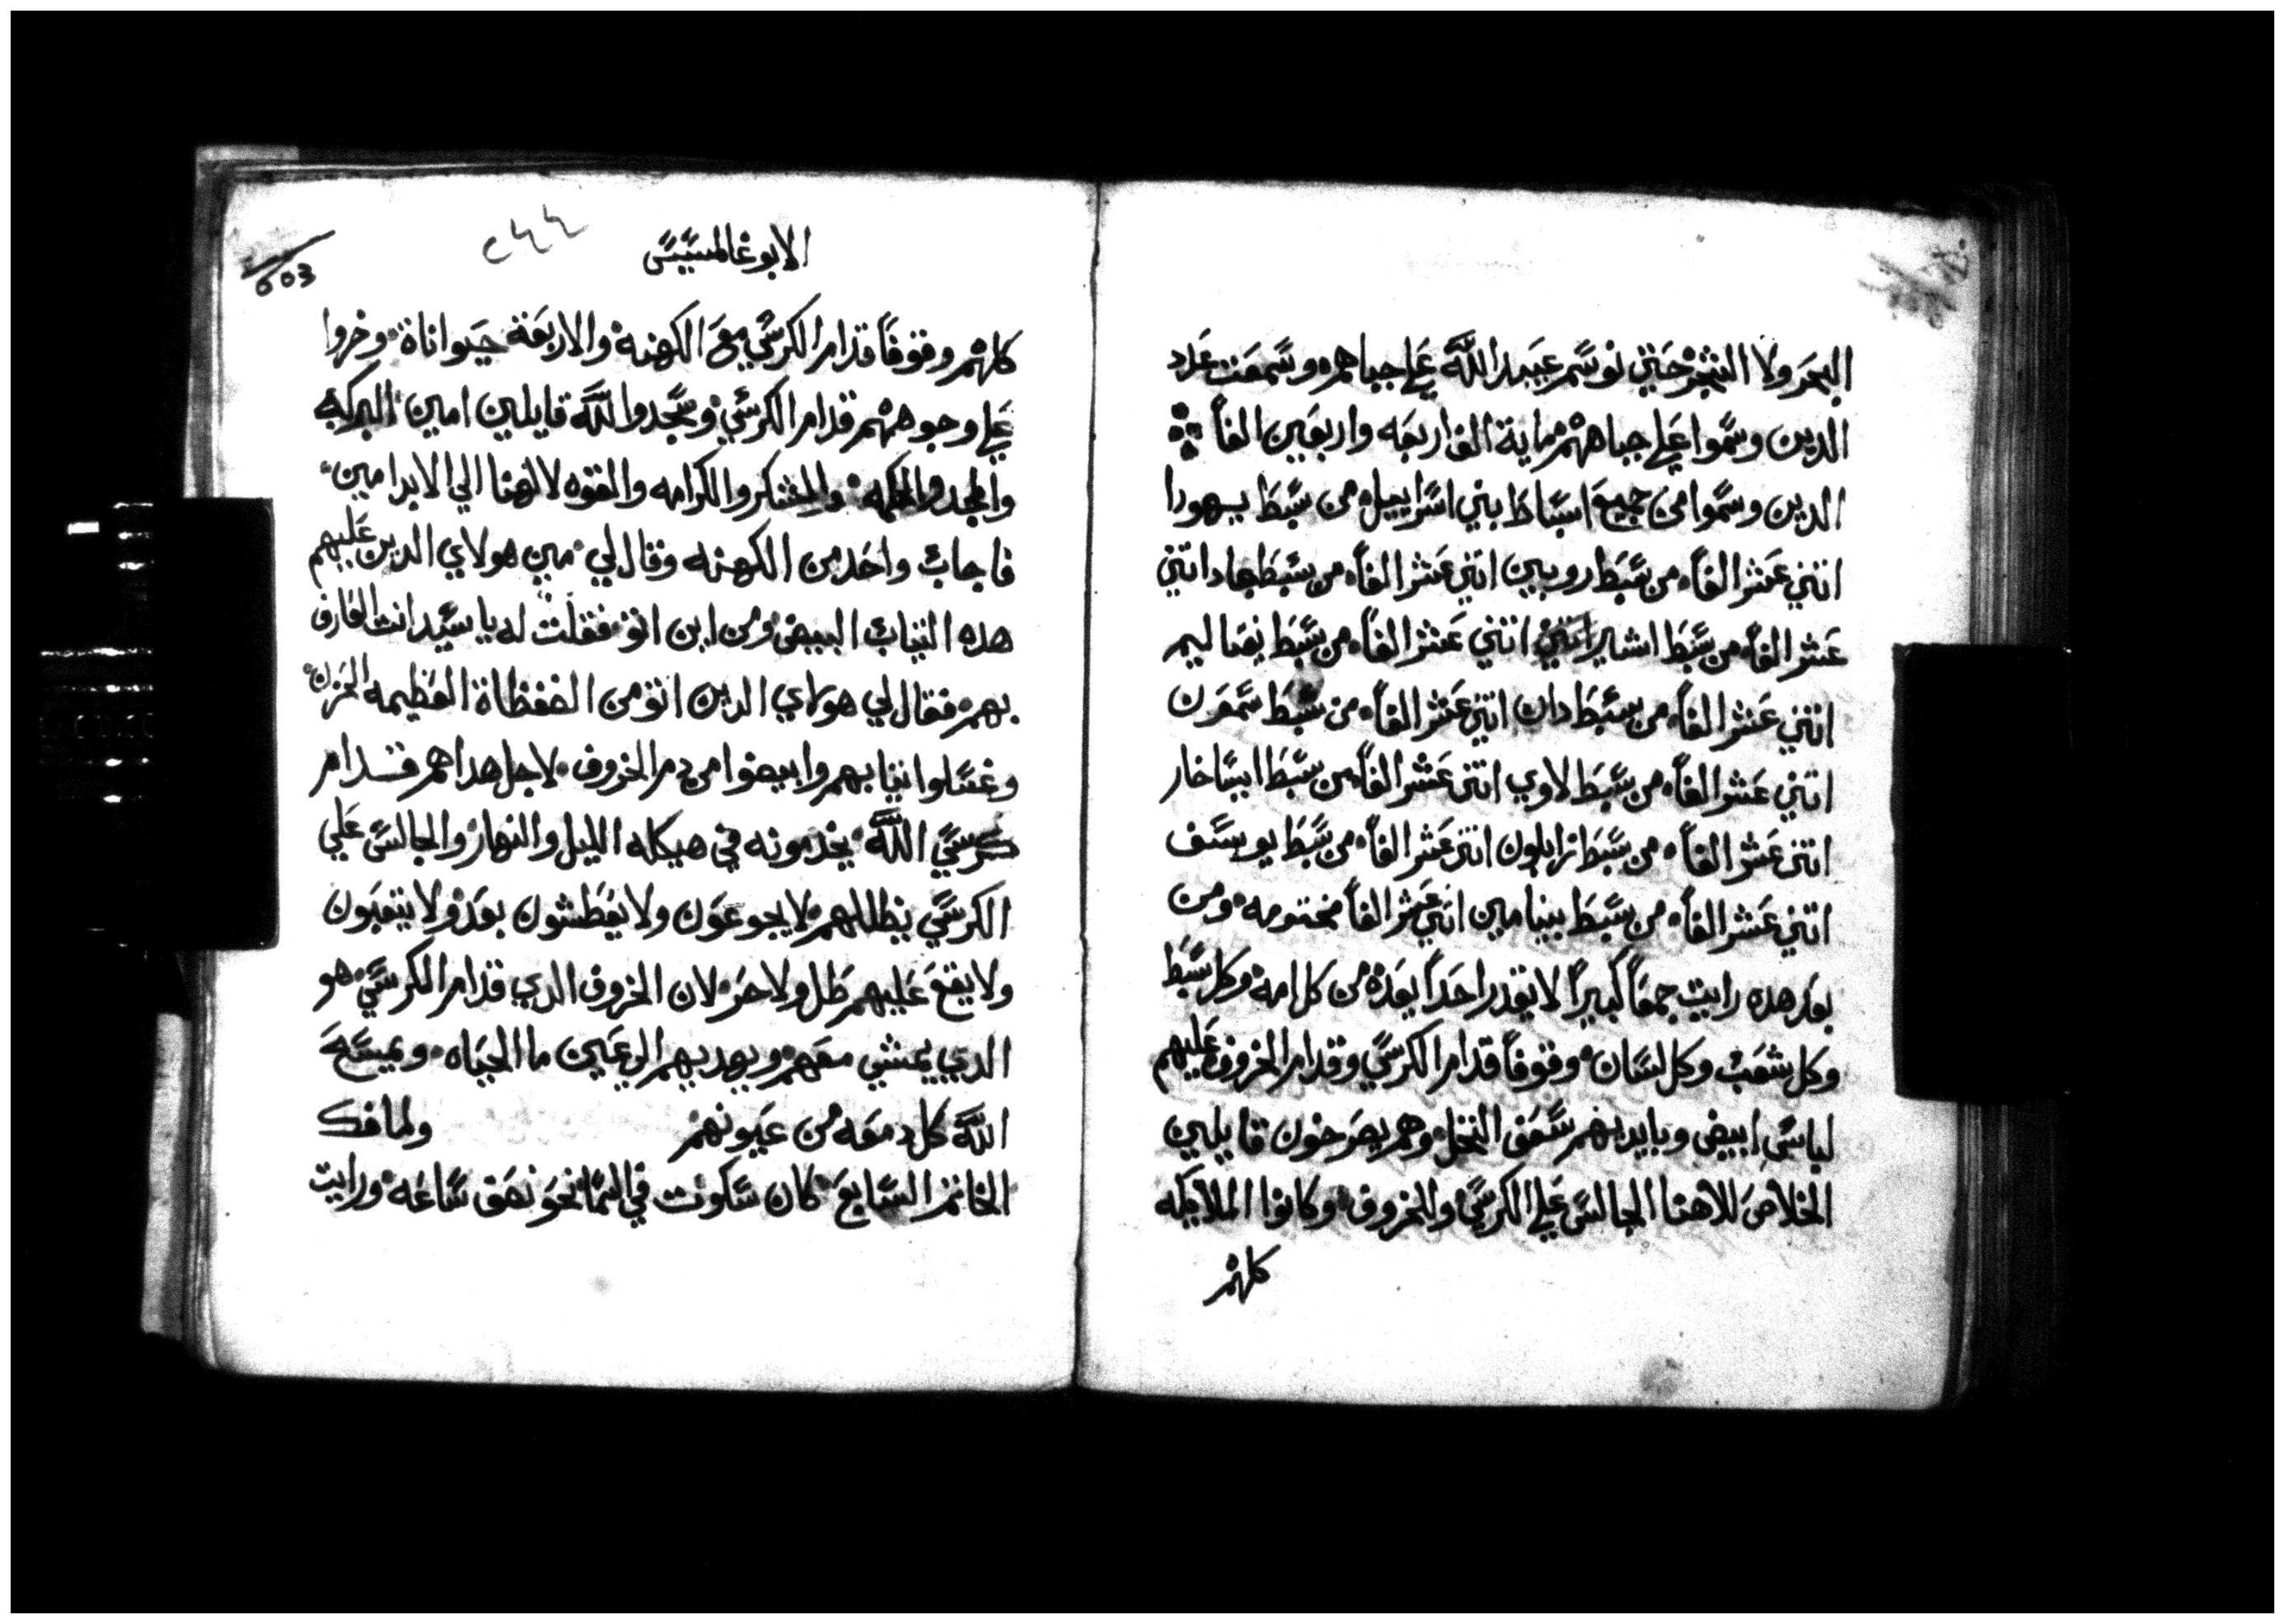 البحر ولا الشجر حتي نوسم عبيد الله علي جباههم وسمعت عدد
الدين وسموا علي جباههم ماية الف اربعه واربعين الفاً
الدين وسموا من جميع اسباط بني اسراييل من سبط يهودا
اتني عشر الفاً من سبط روبين اتني عشر الفاً من سبط جاد اتني
عشر الفاً من سبط اشاير اتني عشر الفاً من سبط نفتاليم
اتني عشر الفاً من سبط دان اتني عشر الفاً من سبط سمعون
اتني عشر الفاً من سبط لاوي اتني عشر الفاً من سبط ايساخار
اتني عشر الفاً من سبط زابلون اتني عشر الفاً من سبط يوسف
اتني عشر الفاً من سبط بينامين اتني عشر الفاً مختومه ومن
بعد هده رايت جمعاً كبيراً لا يقدر احداً يعده من كل امه وكل سبط
وكل شعب وكل لسان وقوفاً قدام الكرسي وقدام الخروف عليهم
لباس ابيض وبايديهم سعف النخل وهم يصرخون قايلين
الخلاص للاهنا الجالس علي الكرسي والخروف وكانوا الملايكه
كلهم
الابوغالمسيس
٢٤٤
603
كلهم وقوفاً قدام الكرسي مع الكهنه والاربعة حيواناة وخروا
علي وجوههم قدام الكرسي وسجدوا لله قايلين امين البركه
والمجد والحكمه والشكر والكرامه والقوه لالهنا الي الابد امين
فاجاب واحد من الكهنه وقال لي مين هولاي الدين عليهم
هده التياب البيض ومن اين اتو فقلت له يا سيد انت العارف
بهم فقال لي هولاي الدين اتو من الضغطاة العظيمه الحزن
وغسلوا تيابهم وابيضوا من دم الخروف لاجل هدا هم قدام
كرسي الله يخدمونه في هيكله الليل والنهار والجالس علي
الكرسي يظللهم لا يجوعون ولا يعطشون بعد ولا يتعبون
ولا يقع عليهم ظل ولا حر لان الخروف الدي قدام الكرسي هو
الدي يمشي معهم ويهديهم الي عين ما الحياه ويمسح
الله كل دمعه من عيونهم ولما فك
الخاتم السابع كان سكوت في السما نحو نصف ساعه ورايت